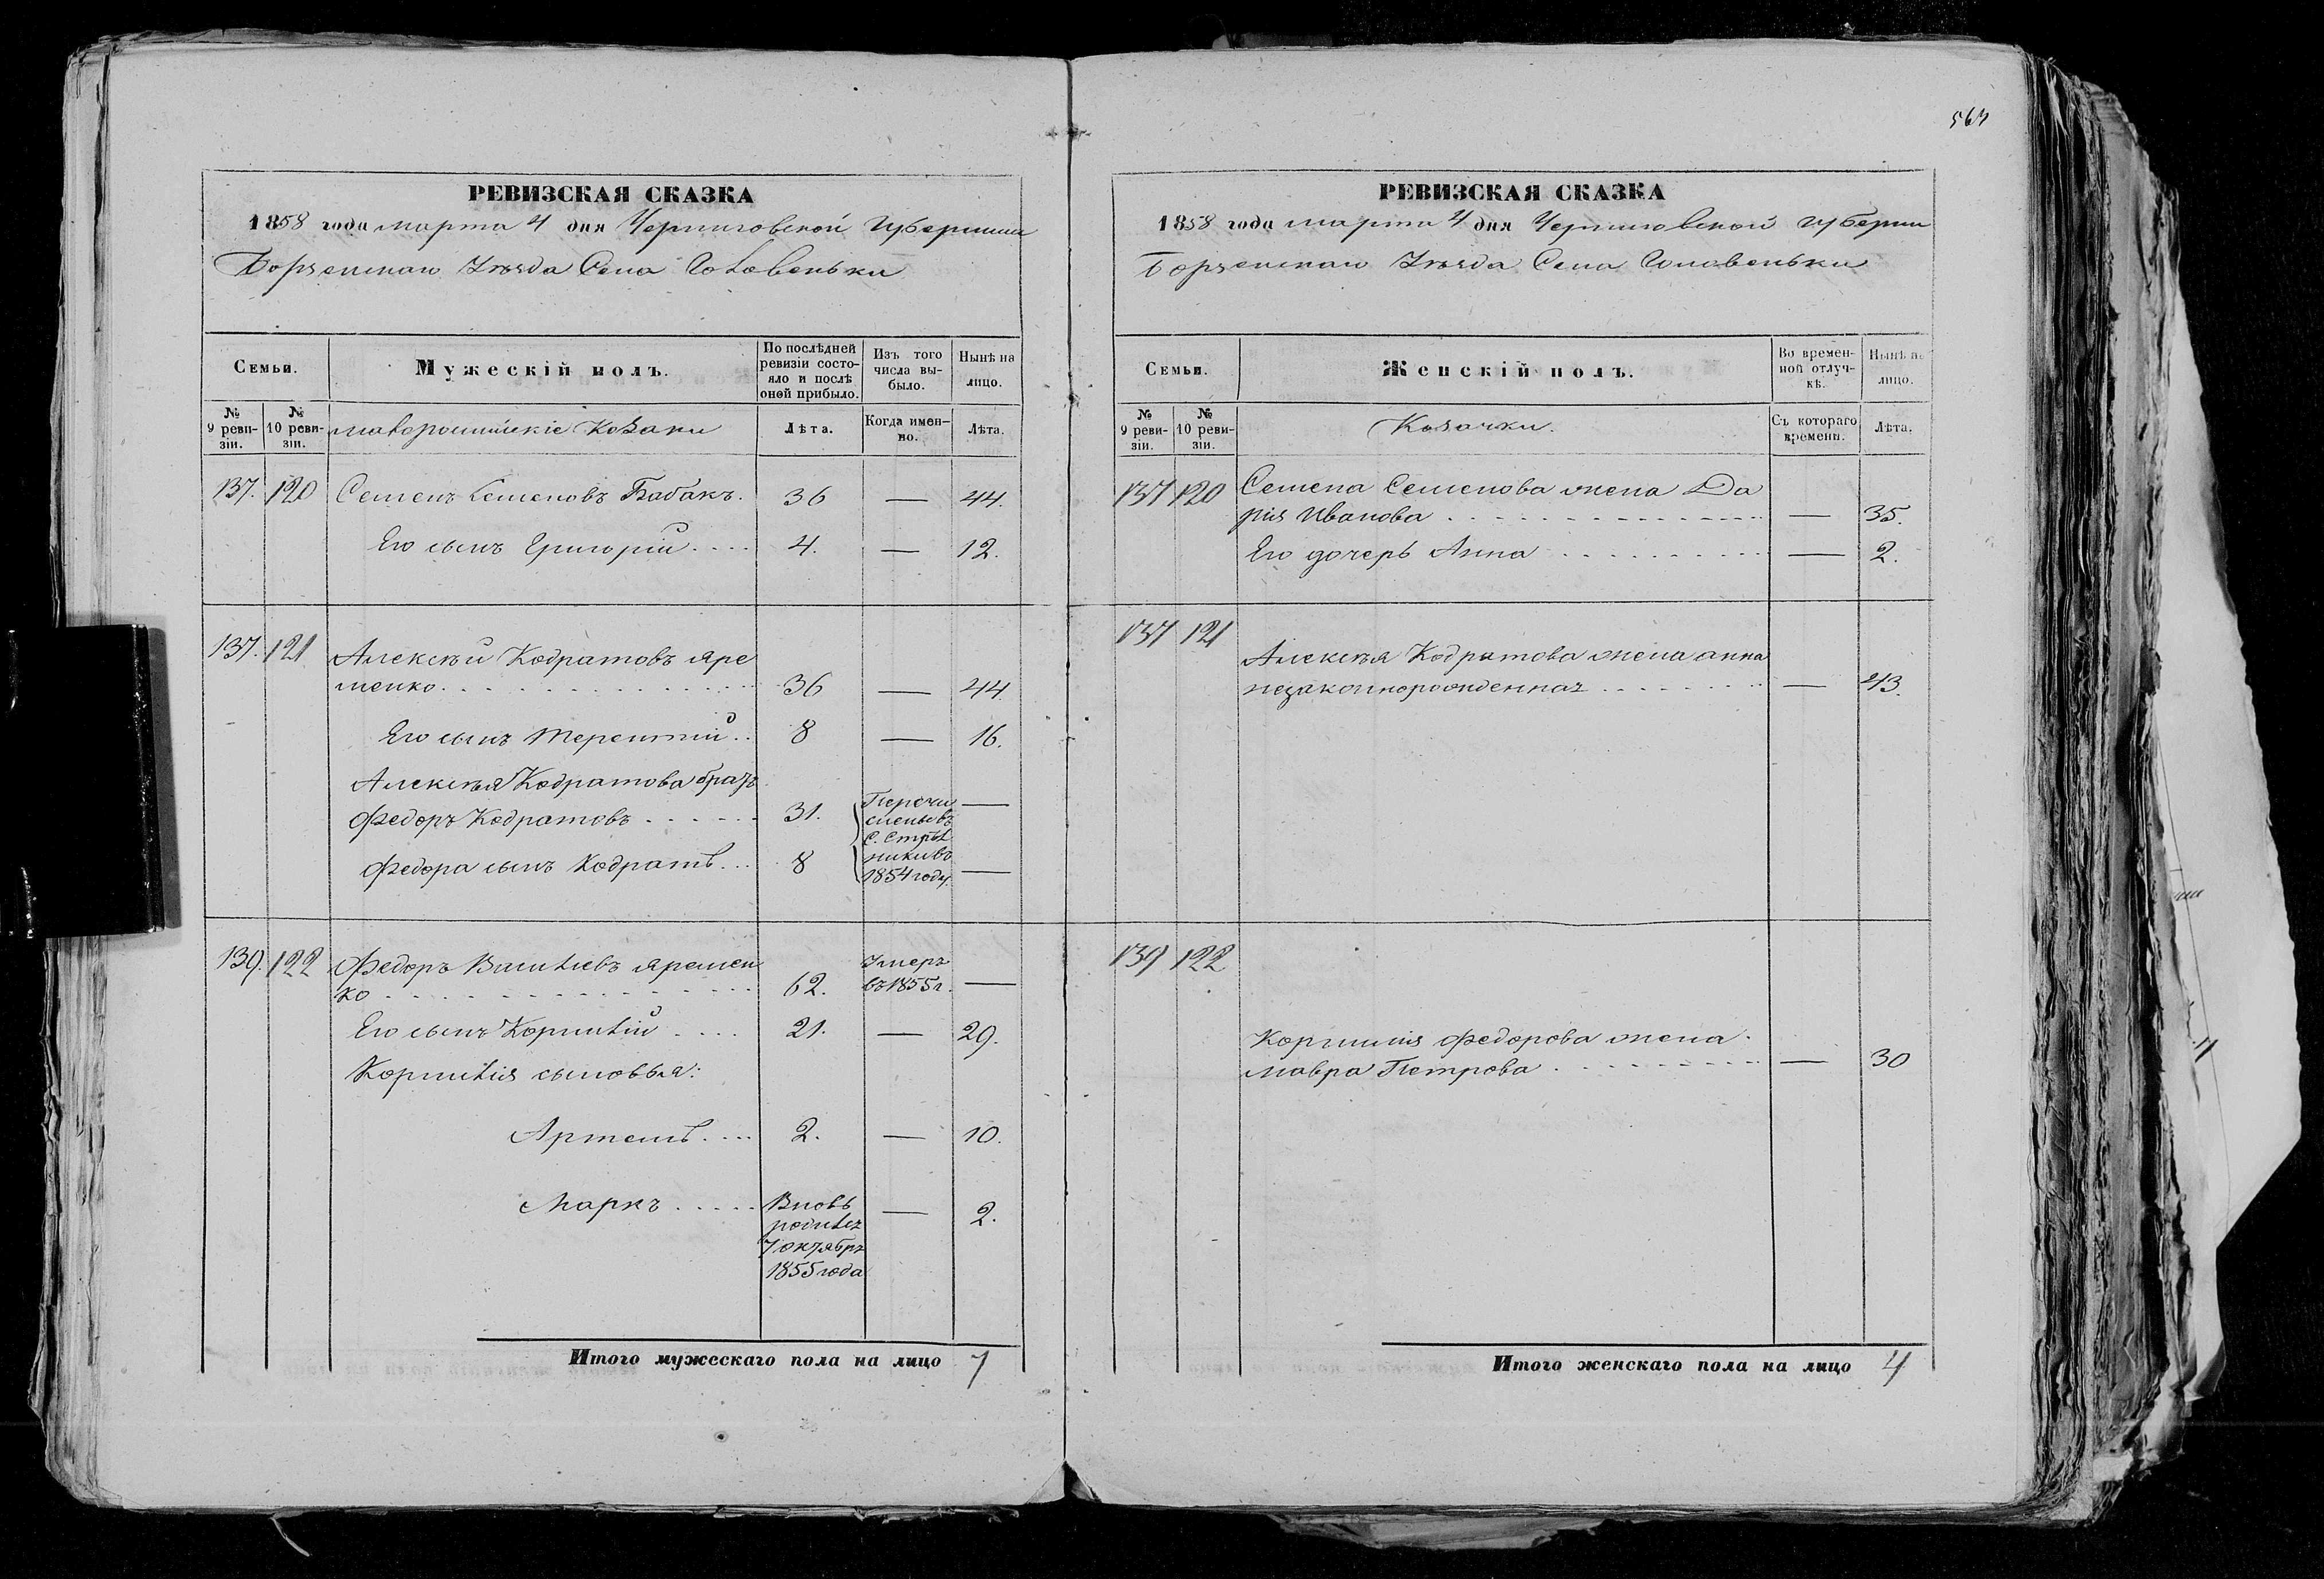 564
РЕВИЗСКАЯ СКАЗКА
1858 года марта 4 дня Черниговской Губернии
Борзенскаго Уѣзда Села Головеньки
Семьи.
Мужескій полъ.
По послѣдней ревизіи состояло и послѣ оной прибыло.
Изъ того числа выбыло.
Нынѣ на лицо.
№ 9 ревизіи.
№ 10 ревизіи.
малороссійскіе Козаки
Лѣта.
Когда именно.
Лѣта.
137. 120 Семенъ Семеновъ Бабакъ. 36 — 44.
Его сынъ Григорій .... 4. — 12.
137. 121 Алексѣй Кодратовъ яре
менко. 36 — 44
Его сынъ Терентій .. 8 — 16.
Алексѣя Кодратова братъ
Федоръ Кодратовъ 31. —
Перечи
сленъ въ
С. Стрѣл
ники въ
1854 году.
Федора сынъ Кодратъ ... 8 —
139. 122 Федоръ Васильевъ яремен
ко 62. —
Умеръ
въ 1855 г.
Его сынъ Корнилій .... 21. — 29.
Корнилія сыновья:
Артемъ .... 2. — 10.
Маркъ ..... Вновь — 2.
родился
7 октября
1855 года
Итого мужескаго пола на лицо 7
РЕВИЗСКАЯ СКАЗКА
1858 года марта 4 дня Черниговской губерни
Борзенскаго Уѣзда Села Головеньки
Семьи.
Женскій полъ.
Во временной отлучкѣ.
Нынѣ на лицо.
№ 9 ревизіи.
№ 10 ревизіи.
Козачки.
Съ котораго времени.
Лѣта.
137 120 Семена Семенова жена Да
рія Иванова — 35.
Его дочерь Анна — 2.
137 121
Алексѣя Кодратова жена анна
незаконнорожденная — 43.
139 122
Корнилія Федорова жена
мавра Петрова — 30
Итого женскаго пола на лицо 4